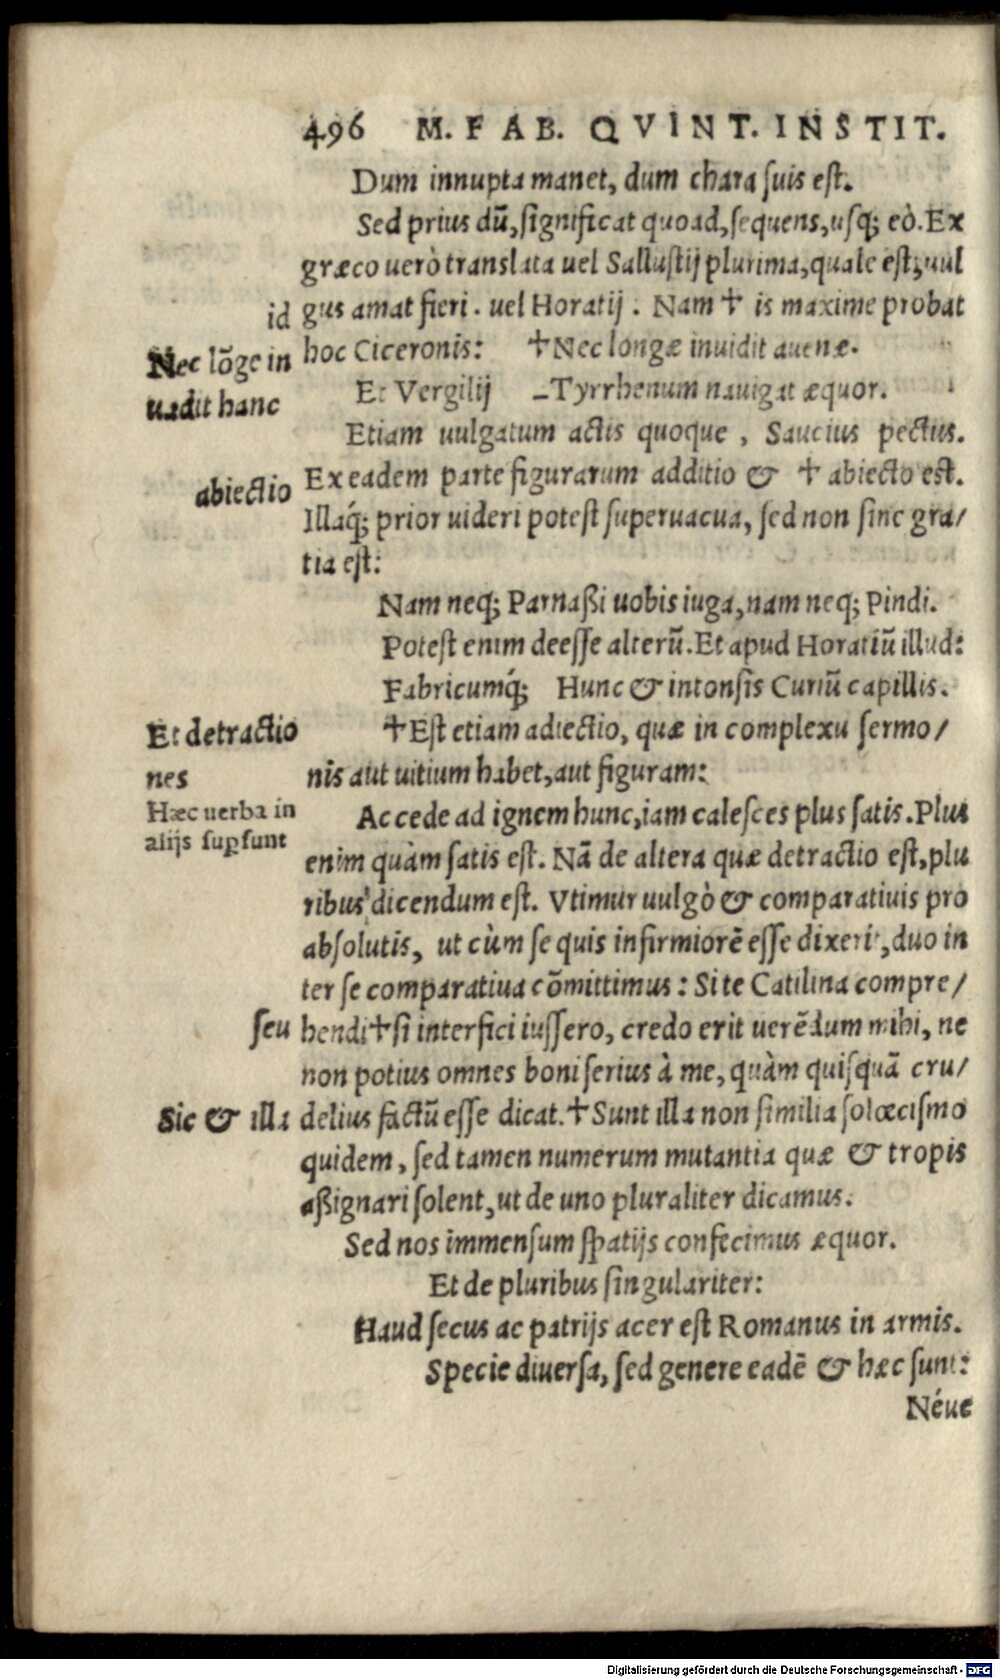 496 M. FAB. QVINT. INSTIT.
Dum innupta manet, dum chara ſuis eſt.
Sed prius dũ, ſignificat quoad, ſequens, uſq; eò. Ex
græco uerò translata uel Salluſtij plurima, quale eſt, uul
id
gus amat fieri. uel Horatij. Nam ✝ is maxime probat
Nec lõge in
hoc Ciceronis: ✝Nec longæ inuidit auenæ.
uadit hanc
Et Vergilij –Tyrrhenum nauigat æquor.
Etiam uulgatum actis quoque, Saucius pectus.
abiectio
Ex eadem parte figurarum additio & ✝ abiecto est.
Illaq́; prior uideri poteſt ſuperuacua, ſed non ſine gra/
tia eſt:
Nam neq; Parnaßi uobis iuga, nam neq; Pindi.
Poteſt enim deeſſe alterũ. Et apud Horatiũ illud:
Fabricumq́; Hunc & intonſis Curiũ capillis.
Et detractio
nes
✝Eſt etiam adiectio, quæ in complexu ſermo/
nis aut uitium habet, aut figuram:
Hæc uerba in
alijs suꝑsunt
Accede ad ignem hunc, iam caleſces plus ſatis. Plus
enim quàm ſatis eſt. Nã de altera quæ detractio eſt, plu
ribus dicendum eſt. Vtimur uulgò & comparatiuis pro
abſolutis, ut cùm ſe quis infirmiorẽ eſſe dixerit, duo in
ter ſe comparatiua cõmittimus: Si te Catilina compre/
ſeu
hendi ✝ ſi interfici iuſſero, credo erit uerẽdum mihi, ne
non potius omnes boni ſerius à me, quàm quiſquã cru/
Sic & illa
delius factũ eſſe dicat. ✝ Sunt illa non ſimilia ſolœciſmo
quidem, ſed tamen numerum mutantia quæ & tropis
aßignari ſolent, ut de uno pluraliter dicamus.
Sed nos immenſum ſpatijs confecimus æquor.
Et de pluribus ſingulariter:
Haud ſecus ac patrijs acer eſt Romanus in armis.
Specie diuerſa, ſed genere eadẽ & hæc ſunt:
Néue
Digitalisierung gefördert durch die Deutsche Forschungsgemeinschaft - DFG